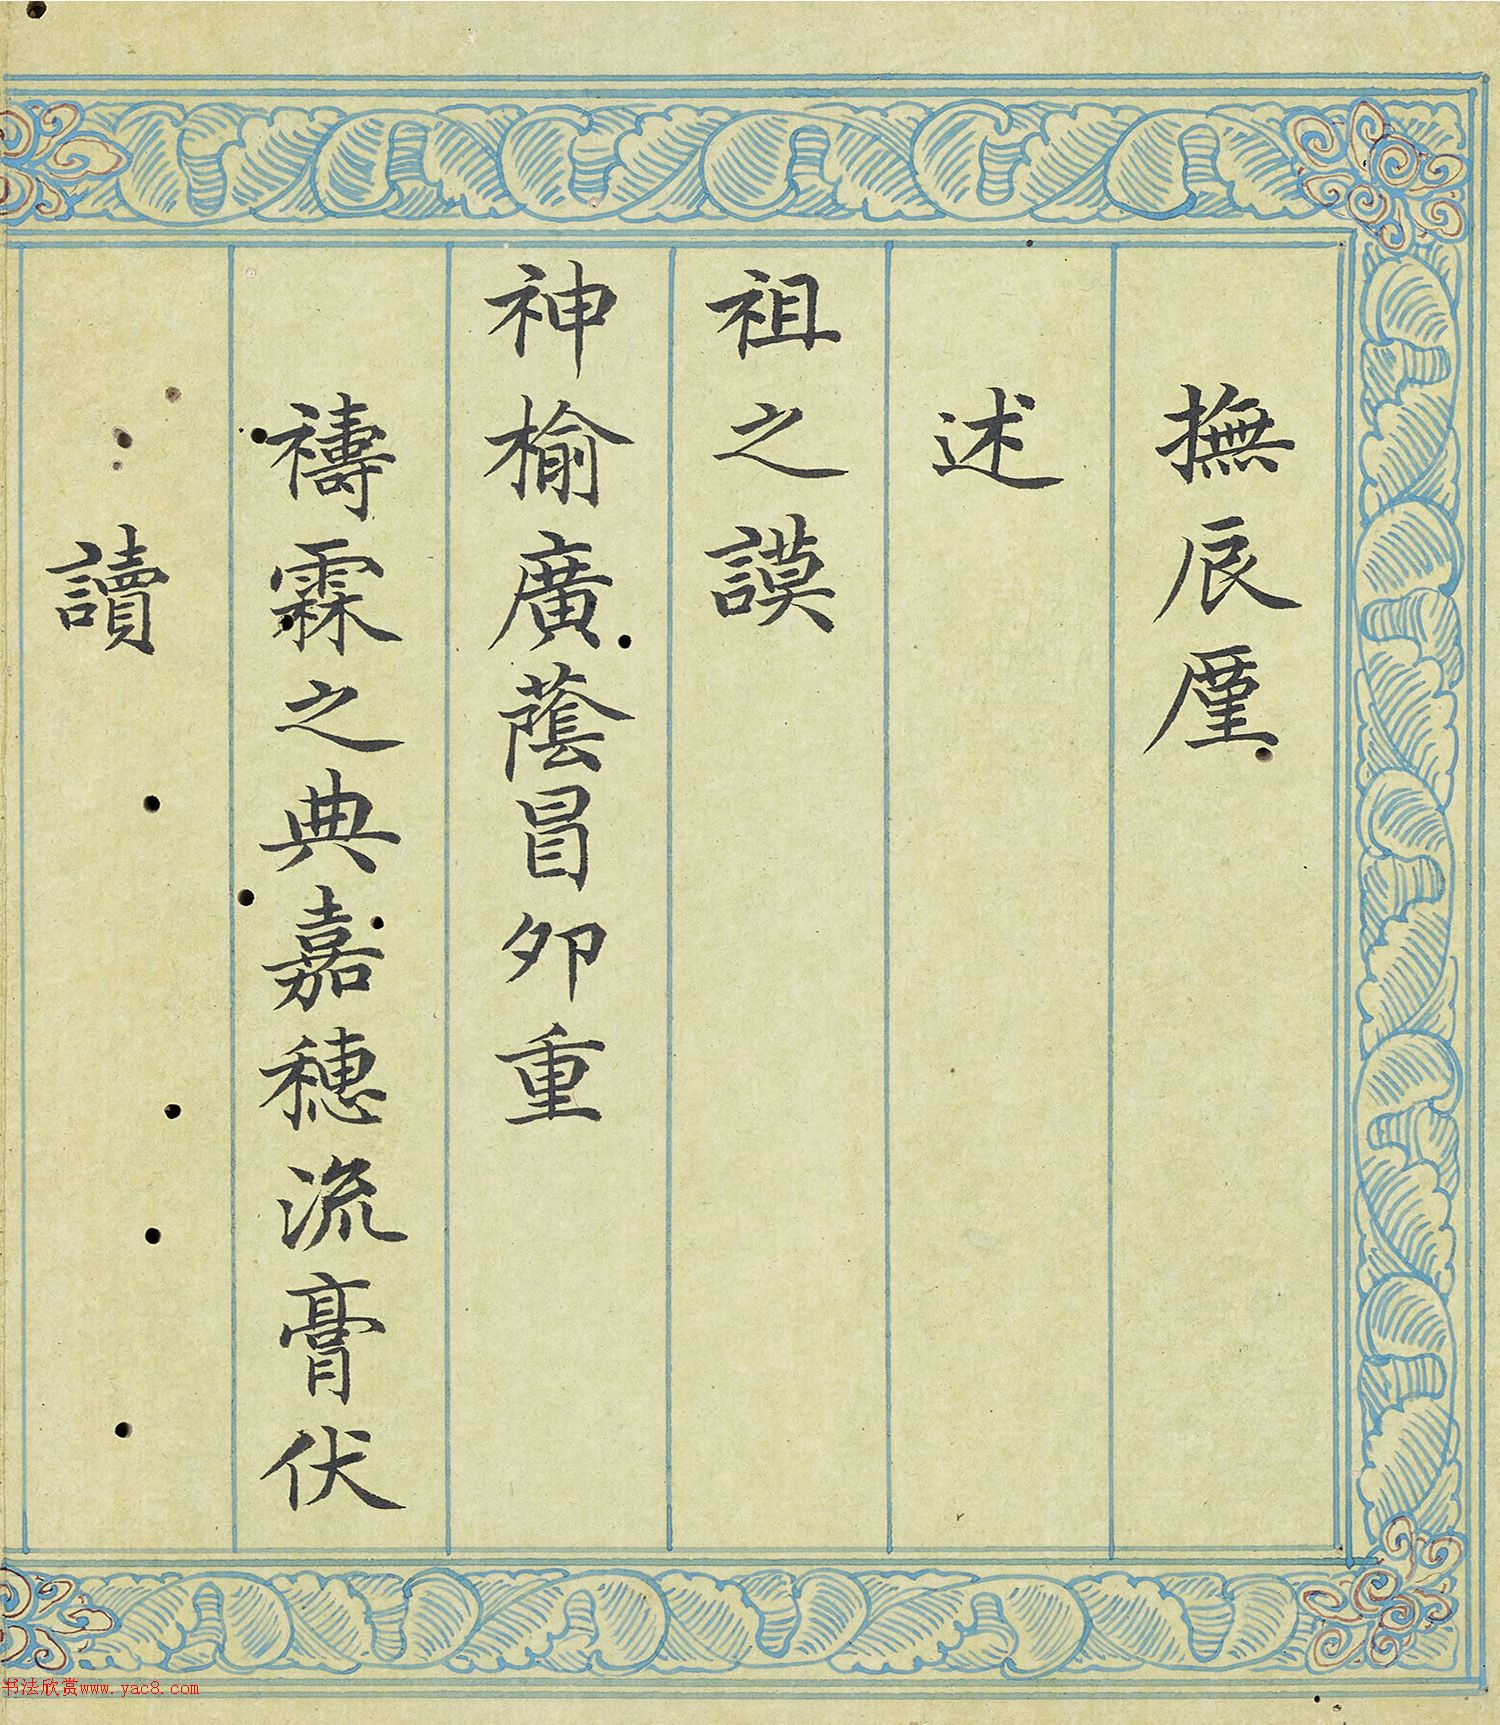 撫辰厪
述
祖之謨
神榆廣蔭冒夘重
禱霖之典嘉穗流膏伏
讀
书法欣赏www.yac8.com